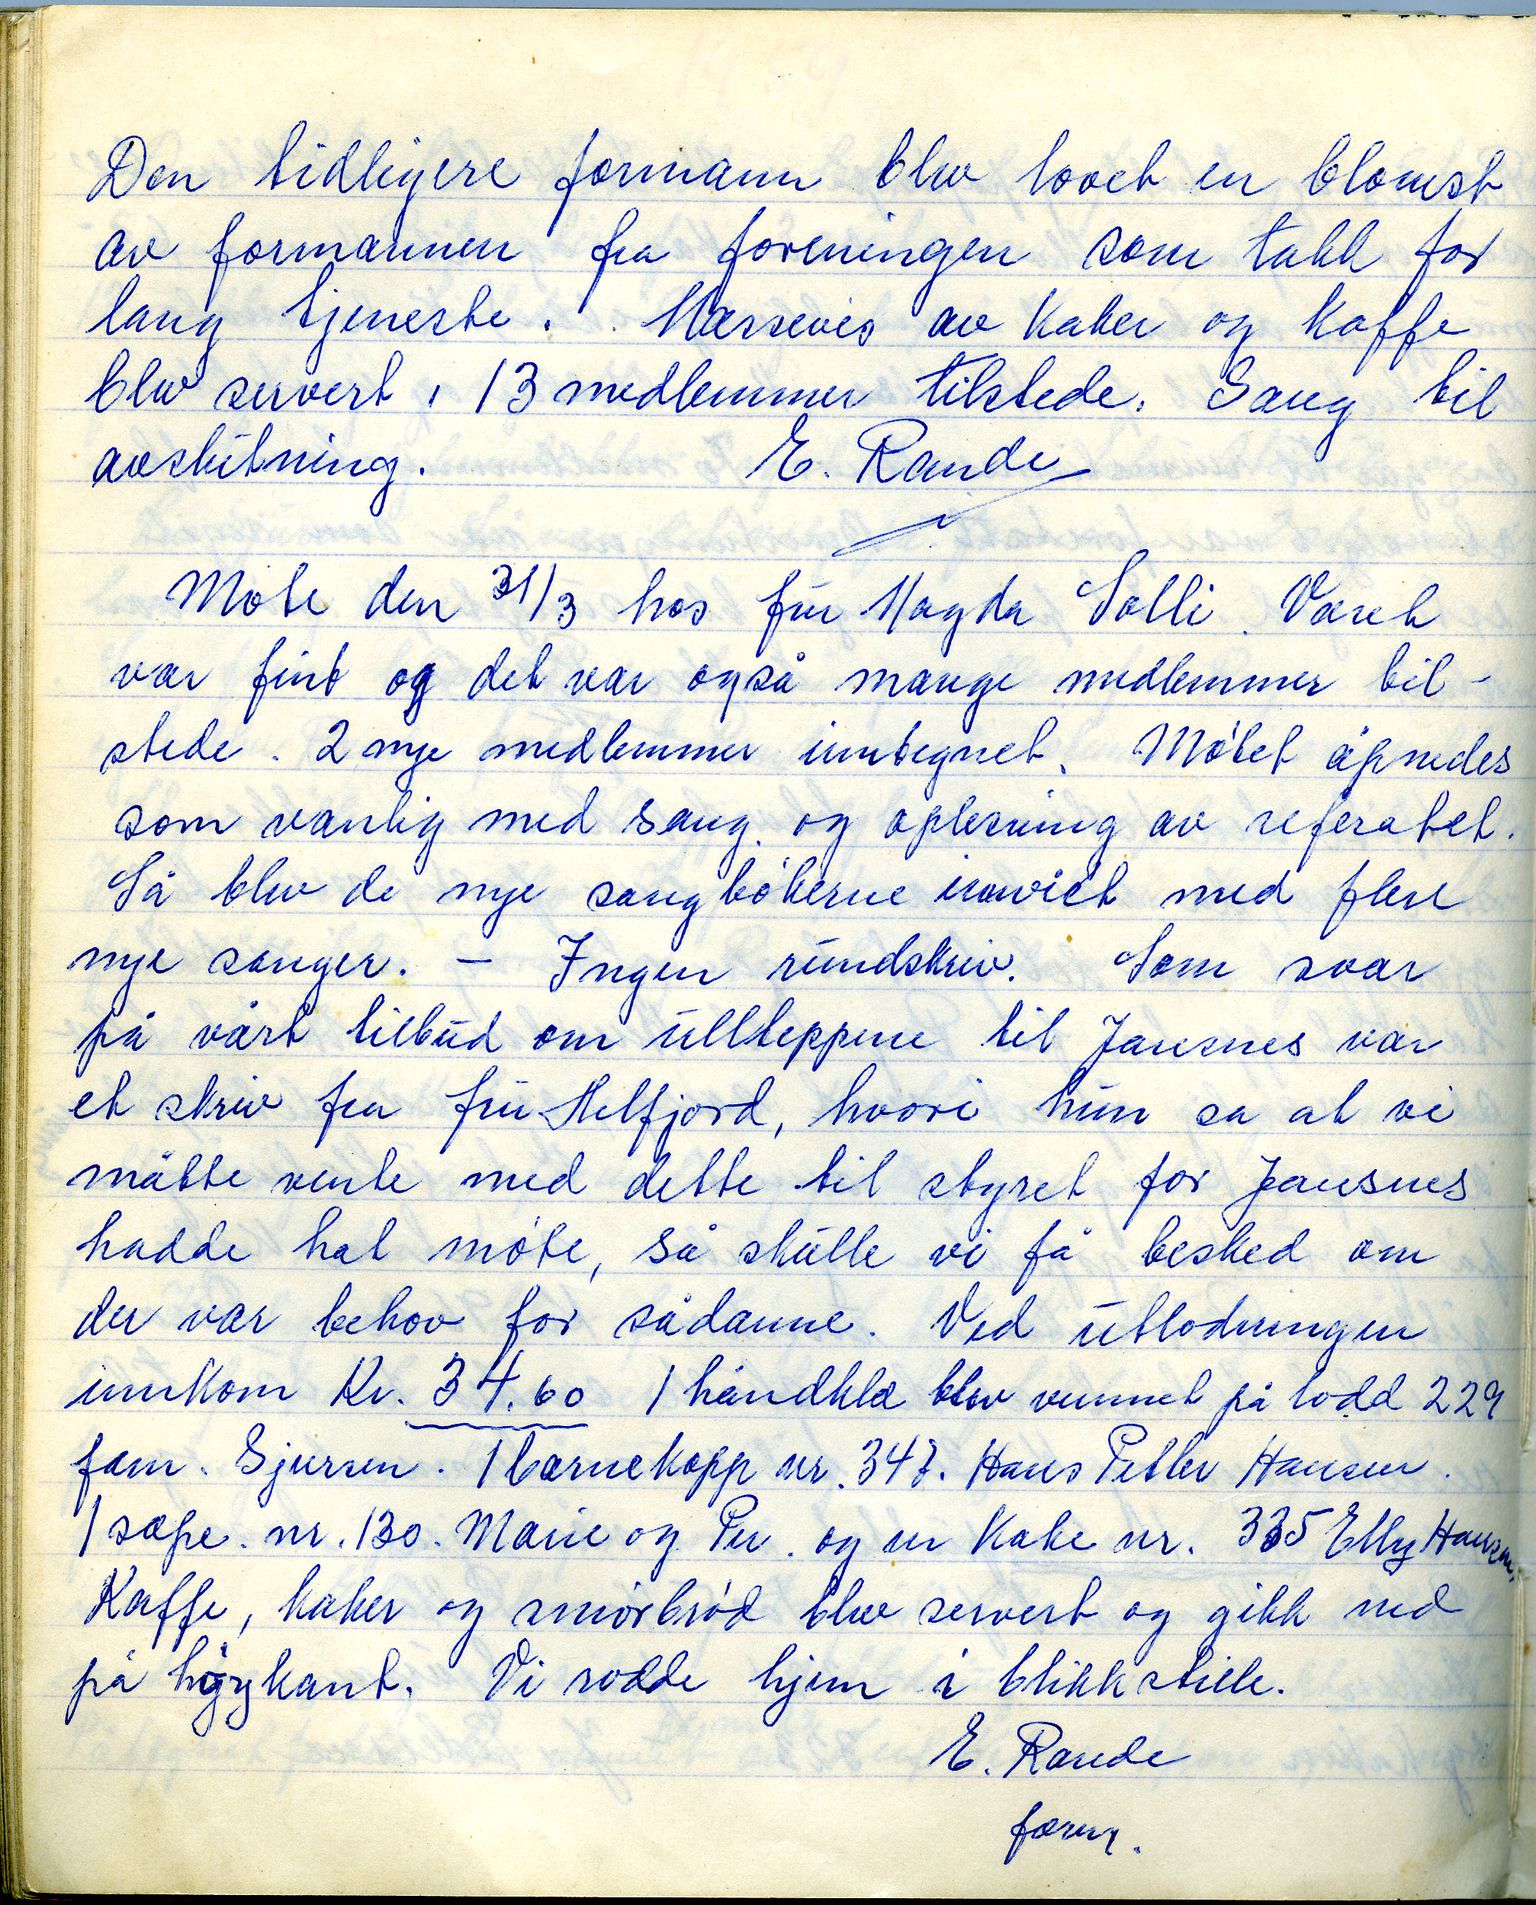 Den tidligere formann blev lovet en blomst
av formannen fra foreningen som takk for
lang tjeneste. Massevis av kaker og kaffe
blev servert, 13 medlemmer tilstede. Sang til
avslutning. E. Rande
Møte den 31/3 hos fru Magda Solli. Været
var fint og det var også mange medlemmer til-
stede. 2 nye medlemmer inntegnet. Møtet åpnedes
som vanlig med sang og oplesning av referatet.
Så blev de nye sangbøkerne innviet med flere
nye sanger. - Ingen rundskriv. Som svar
på vårt tilbud om ullteppene til Jansnes var
et skriv fra fru Melfjord, hvori hun sa at vi
måtte vente med dette til styret for Jansnes
hadde hat møte, så skulle vi få besked om
der var behov for sådanne. Ved utlodningen
innkom Kr. 34.60 1 håndklæ blev vunnet på lodd 229
fam. Sjursen. 1 barnekopp nr. 347. Hans Petter Hansen.
1 såpe. nr. 130. Marie og Per. og en kake nr. 335 Elly Hansen.
Kaffe, kaker og smørbrød blev servert og gikk ned
på høykant. Vi rodde hjem i blikkstille.
E. Rande
form.